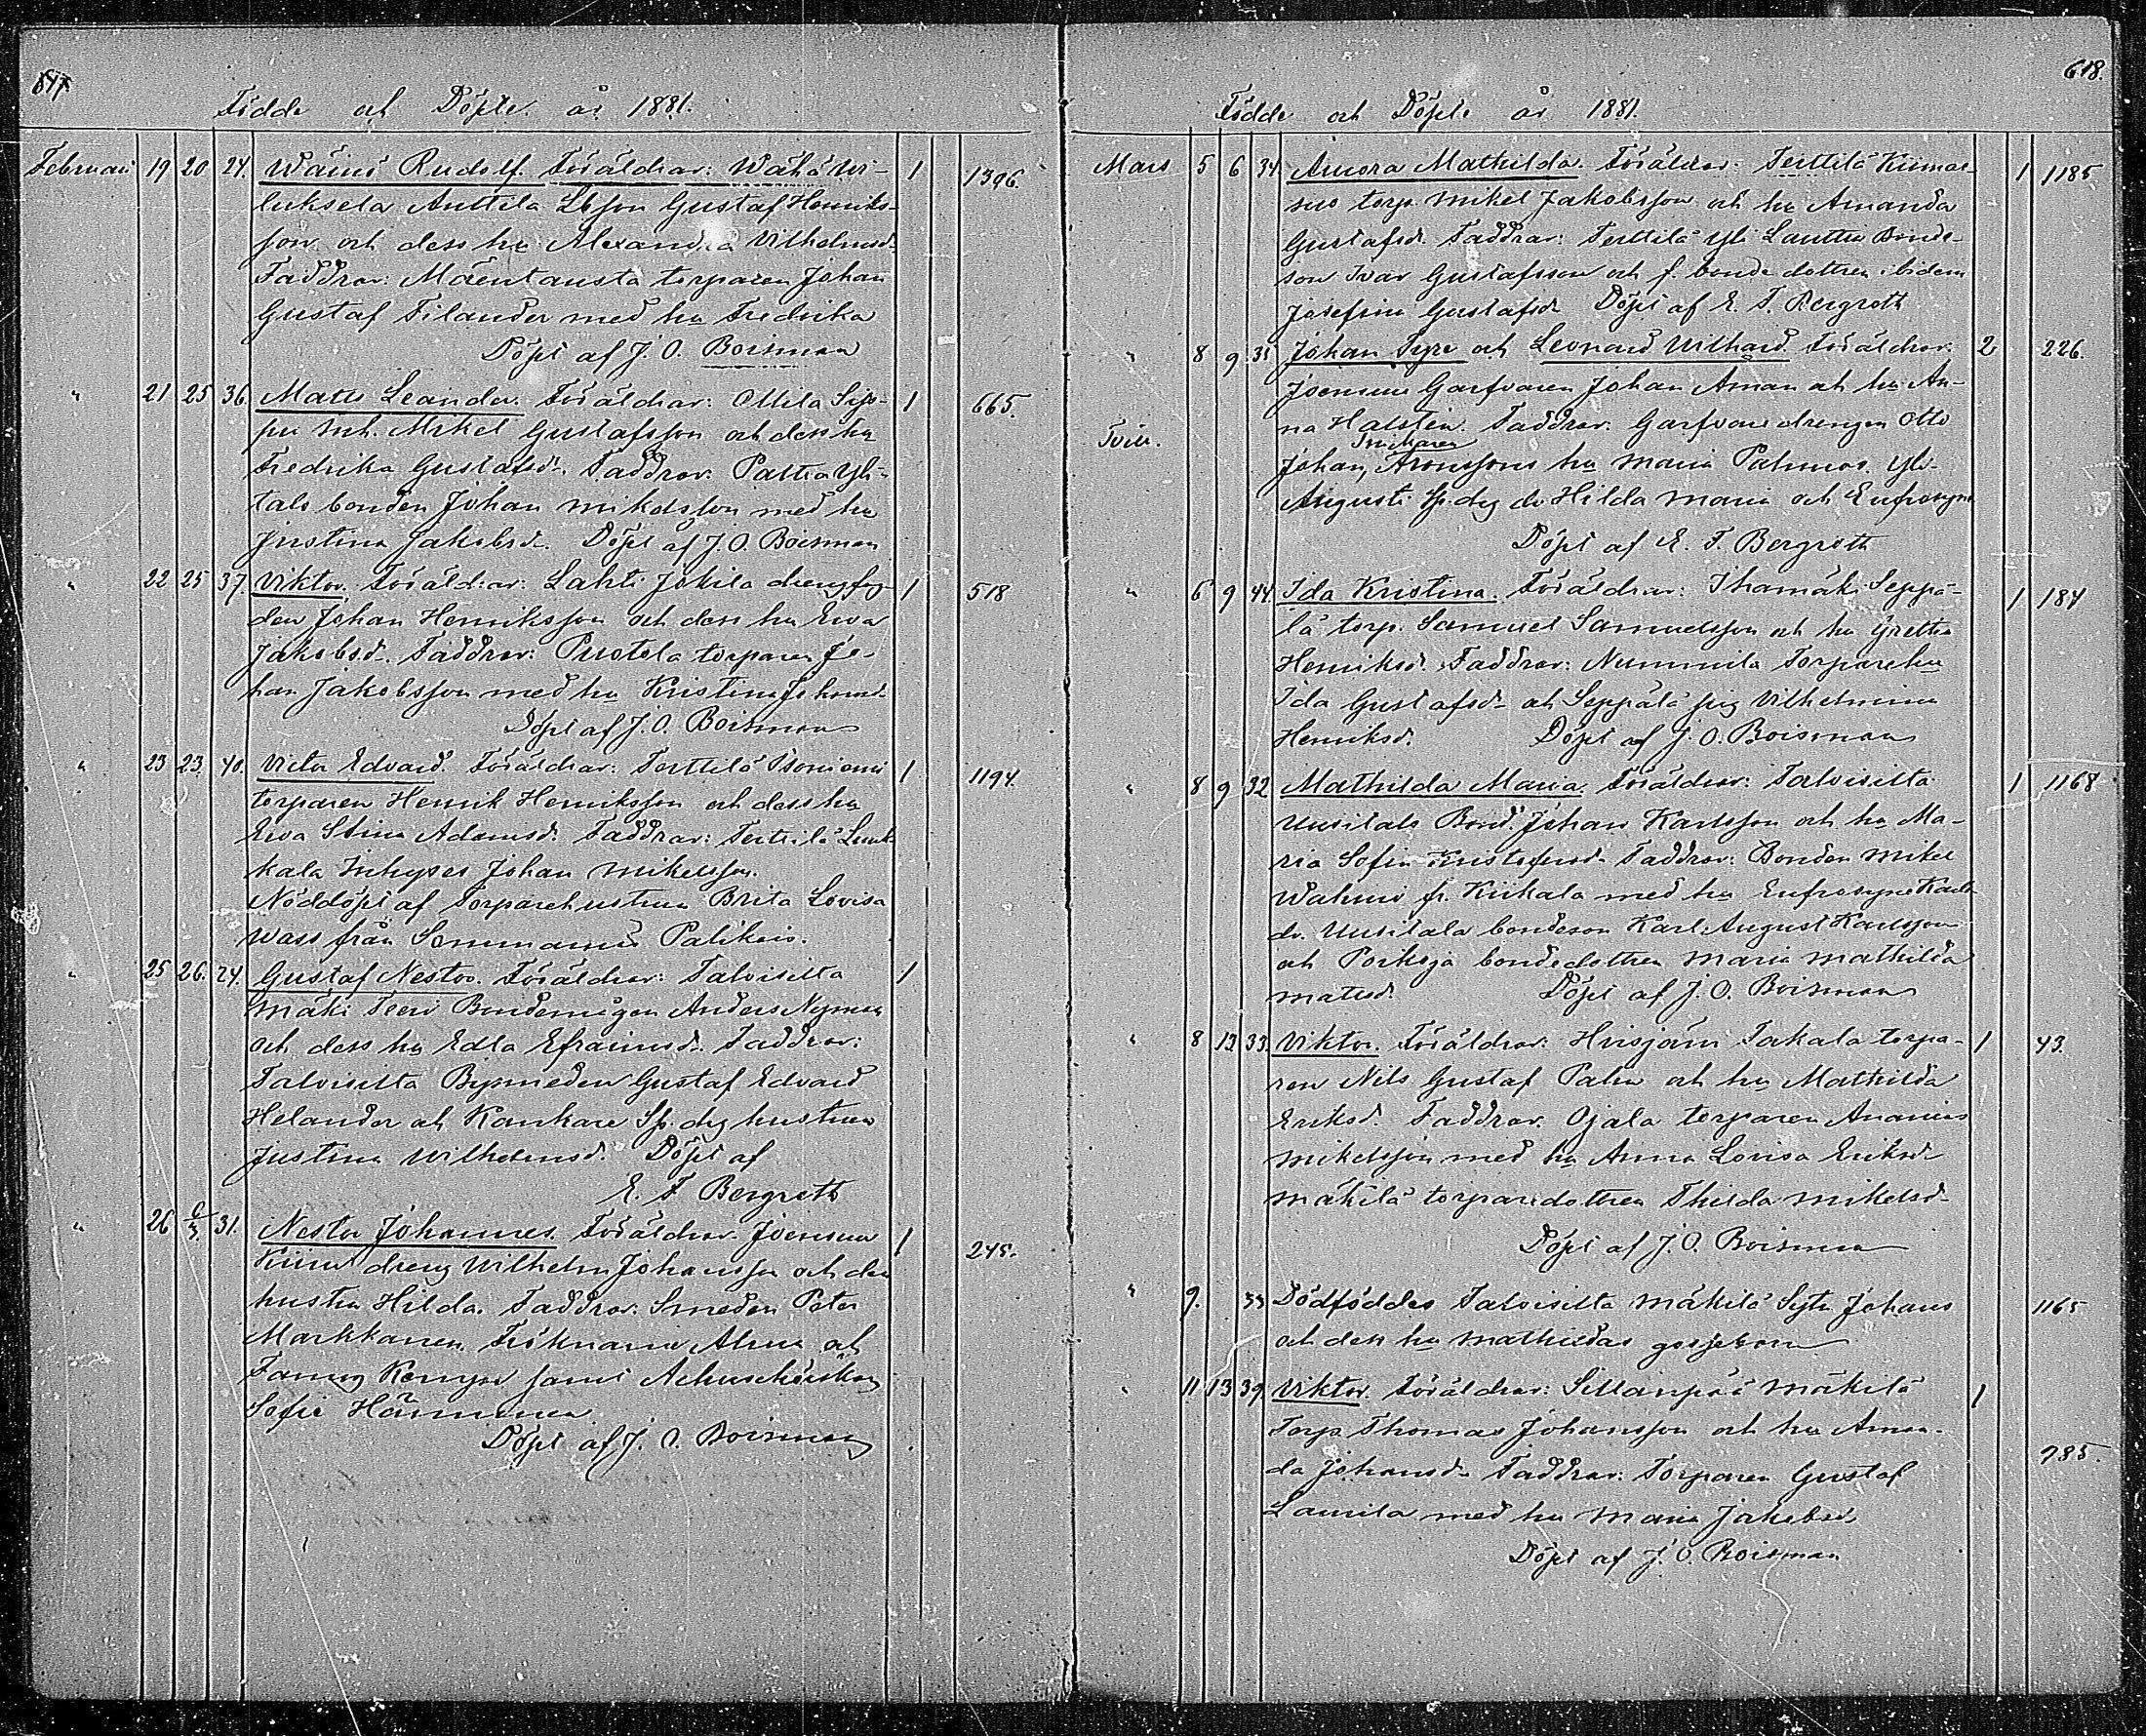 617
Födde och Döpte år 1881.
Februari 19 20 24. Wäinö Rudolf. Föräldrar: Wähä Wi- 1 1396.
luksela Anttila Lbson Gustaf Henriks-
son och dess hu Alexandra Vilhelmsd.
Faddrar: Mäentausta torparen Johan
Gustaf Filander med hu Fredrika
Döpt af J. O. Boisman
" 21 25 36. Matts Leander. Föräldrar: Ollila Sip- 1 665.
pu Inh. Mikel Gustafsson och dess hu
Fredrika Gustafsd. Faddrar: Yli-
talo bonden Johan Mikelsson med hu
Justina Jakobsd. Döpt af J. O. Boisman
" 22 25 37. Viktor. Föräldrar: Lahti Jokila drengfog- 1 518
den Johan Henriksson och dess hu Eva
Jakobsd. Faddrar: Puotola torparen Jo-
han Jakobsson med hu Kristina Johansd.
Döpt af J. O. Boisman
" 23 23. 40. Victor Edvard. Föräldrar: Terttilä Isoniemi 1 1194.
torparen Henrik Henriksson och dess hu
Eva Stina Adamsd. Faddrar: Terttilä
kala Inhyses Johan Mikelsson.
Nöddöpt af Torparehustrun Brita Lovisa
Wass från Palikais.
" 25 26. 24. Gustaf Nestor. Föräldrar: Talvisilta 1
Mäki Teeri Bondemågen Anders Nyman
och dess hu Edla Efraimsd. Faddrar:
Talvisilta Bysmeden Gustaf Edvard
Helander och Kankare Sp. deg hustrun
Justina Wilhelmsd. Döpt af
E. F. Bergroth
" 26 6/3. 31. Nestor Johannes. Föräldrar. Joensuu 1 245.
dreng Wilhelm Johansson och des
hustru Hilda. Faddrar: Smeden Peter
Markkanen. Fröknarne Alma och
Fanny samt
Sofie Hänninen
Döpt af J. O. Boisman
618.
Födde och Döpte år 1881.
Mars 5 6 34. Aurora Mathilda. Föräldrar: Terttilä Kiimas- 1 1185
suo torp. Mikel Jakobsson och hu Amanda
Gustafsd. Faddrar: Terttilä Yli Lauttia Bonde-
son Ivar Gustafsson och f. bonde dottren ibidem
Josefina Gustafsd. Döpt af E. F. Bergroth
" 8 9 35 Johan Syre och Leonard Vilhard. Föräldrar: 2 226.
Joensuu Garfvaren Johan Aman och hu An-
Tvill. na Halstén. Faddrar: Garfvaredrengen Otto
Snikaren
Johan, Aronssons hu Maria Palmros. Yli-
Augusti Sp. deg dr Hilda Maria och Eufrosyne
Döpt af E. F. Bergroth
" 6 9 44. Ida Kristina. Föräldrar: Ihamäki Seppä- 1 184
lä torp. Samuel Samuelsson och hu Gretha
Henriksd. Faddrar: Nummila Torparehu
Ida Gustafsd. och Seppälä pig Vilhelmina
Henriksd. Döpt af J. O. Boisman
" 8 9 32 Mathilda Maria. Föräldrar: Talvisilta 1 1168
Uusitalo Bond. Johan Karlsson och hu Ma-
ria Sofia Kristofersd. Faddrar: Bonden Mikel
Wahmo fr. Kiikala med hu Eufrosyne Karls
dr. Uusitala bondeson Karl August Karlsson
och Porkoja bondedottren Maria Mathilda
Mattsd. Döpt af J. O. Boisman
" 8 13 33. Viktor. Föräldrar: Hirsjärvi Takala torpa- 1 43.
ren Nils Gustaf Palin och hu Mathilda
Eriksd. Faddrar. Ojala torparen Ananias
Mikelsson med hu Anna Lovisa Eriksd.
Mäkilä torparedottren Thilda Mikelsd.
Döpt af J. O. Boisman
" 9. 33 Dödföddes Talvisilta Mäkilä Sytn. Johans 1165
och dess hu Mathildas gossebarn
" 11 13 39 Viktor. Föräldrar: Sillanpää Mäkilä 1
Torp. Thomas Johansson och hu Aman-
da Johansd. Faddrar: Torparen Gustaf 985.
Laurila med hu Maria Jakobsd.
Döpt af J. O. Boisman